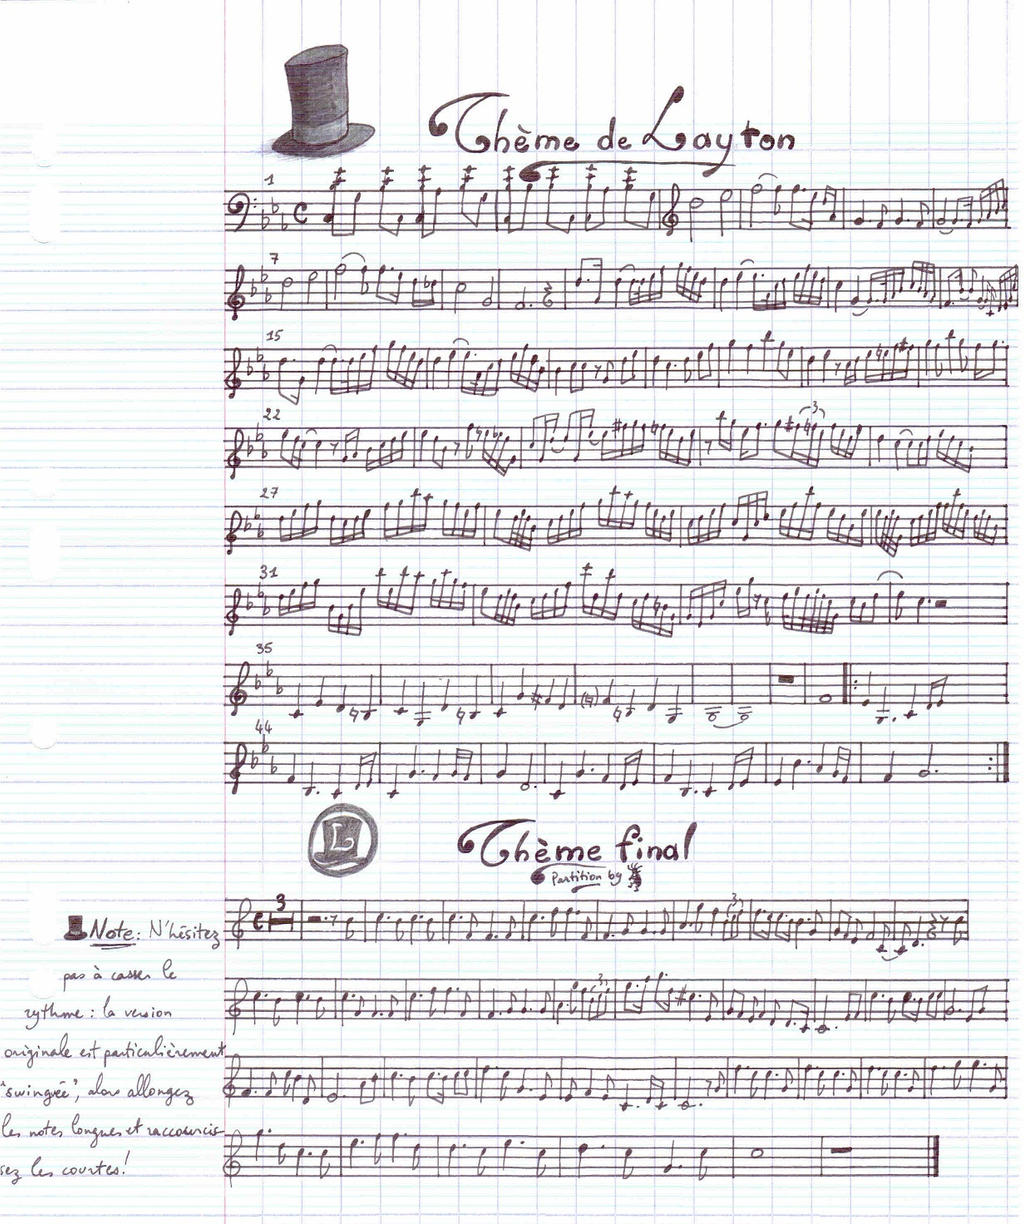 Thème de Layton
1
7
15
22
3
27
31
35
44
L
Thème final
Partition by
3
3
Note: N'hésitez
pas à casser le
rythme : la version
originale est particulièrement
"swinguée", alors allongez
les notes longues et raccourcis-
sez les courtes!
3